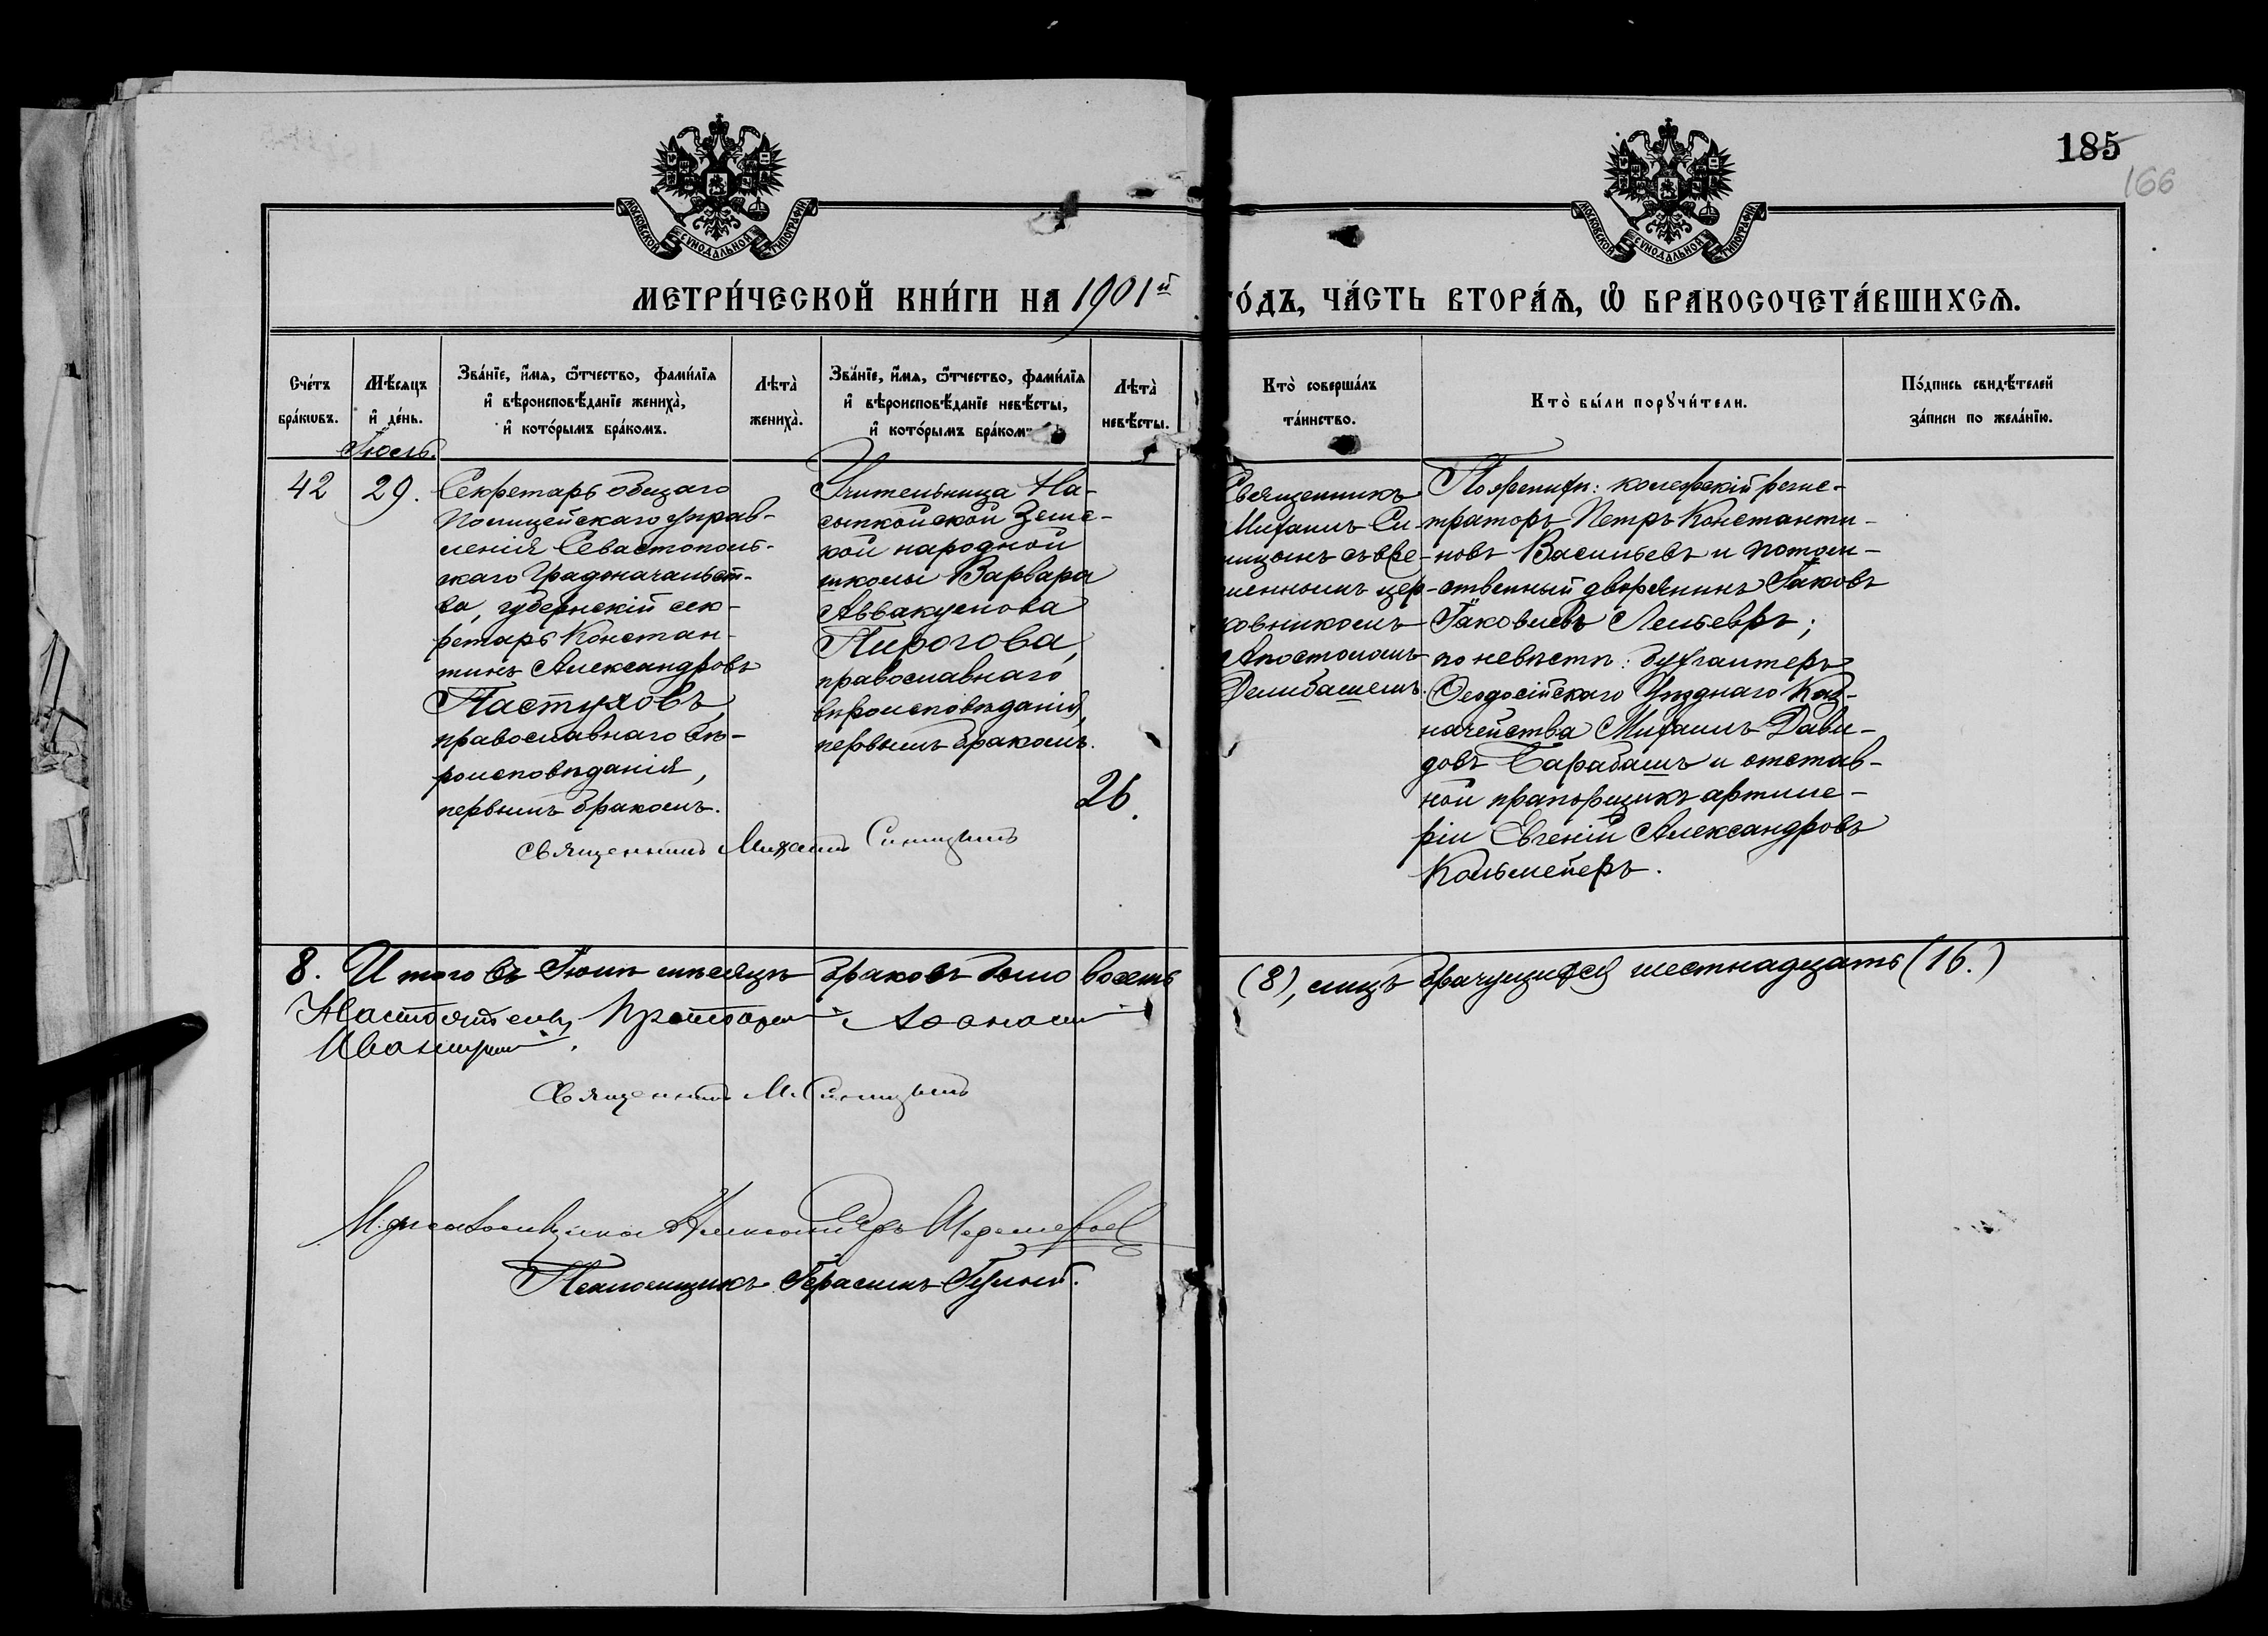 МОСКОВСКОЙ СѴНОДАЛЬНОЙ ТИПОГРАФІИ
МОСКОВСКОЙ СѴНОДАЛЬНОЙ ТИПОГРАФІИ
185
166
МЕТРИ́ЧЕСКОЙ КНИ́ГИ НА 1901й
ГО́ДЪ, ЧА́СТЬ ВТОРА́Ѧ, Ѽ БРАКОСОЧЕТА́ВШИХСѦ.
Сче́тъ
бра́кѡвъ.
Мѣ́сѧцъ
и҆ де́нь.
Зва́нїе, и҆́мѧ, ѻ҆́тчество, фами́лїѧ
и҆ вѣроисповѣ́данїе жениха̀,
и҆ кото́рымъ бра́комъ.
Лѣта̀
жениха̀.
Зва́нїе, и҆́мѧ, ѻ҆́тчество, фами́лїѧ
и҆ вѣроисповѣ́данїе невѣ́сты,
и҆ кото́рымъ бра́комъ
Лѣта̀
невѣ́сты.
Кто̀ соверша́лъ
та́инство.
Кто̀ бы́ли порꙋчи́тели.
По́дпись свидѣ́телей
за́писи по жела́нїю.
Іюль.
42
29.
Секретарь общаго
Полицейскаго управ-
ленія Севастополь-
скаго Градоначальст-
ва, губернскій сек-
ретарь Констан-
тинъ Александровъ
Пастуховъ,
православнаго вѣ-
роисповѣданія,
первымъ бракомъ.
Учительница На-
сыпкойской Земс-
кой народной
школы Варвара
Аввакумова
Пирогова,
православнаго
вѣроисповѣданія,
первымъ бракомъ.
26.
Священникъ Михаилъ Синицынъ
Священникъ
Михаилъ Си-
ницынъ съ вре-
меннымъ цер-
ковникомъ
Апостоломъ
Делибашемъ.
По женихѣ: колежскій регис-
траторъ Петръ Константи-
новъ Васильевъ и потом-
ственный дворянинъ Іаковъ
Іаковлевъ Лельевръ;
по невѣстѣ: бухгалтеръ
Ѳеодосійскаго Уѣзднаго Каз-
начейства Михаилъ Дави-
довъ Барабашъ и отстав-
ной прапорщикъ артиле-
ріи Евгеній Александровъ
Кольмейеръ.
8. Итого въ Іюлѣ мѣсяцѣ браковъ было восемь
(8), лицъ брачущихся шестнадцать (16.)
Настоятель, Протоіерей
Священникъ М. Синицынъ
Псаломщикъ Герасимъ